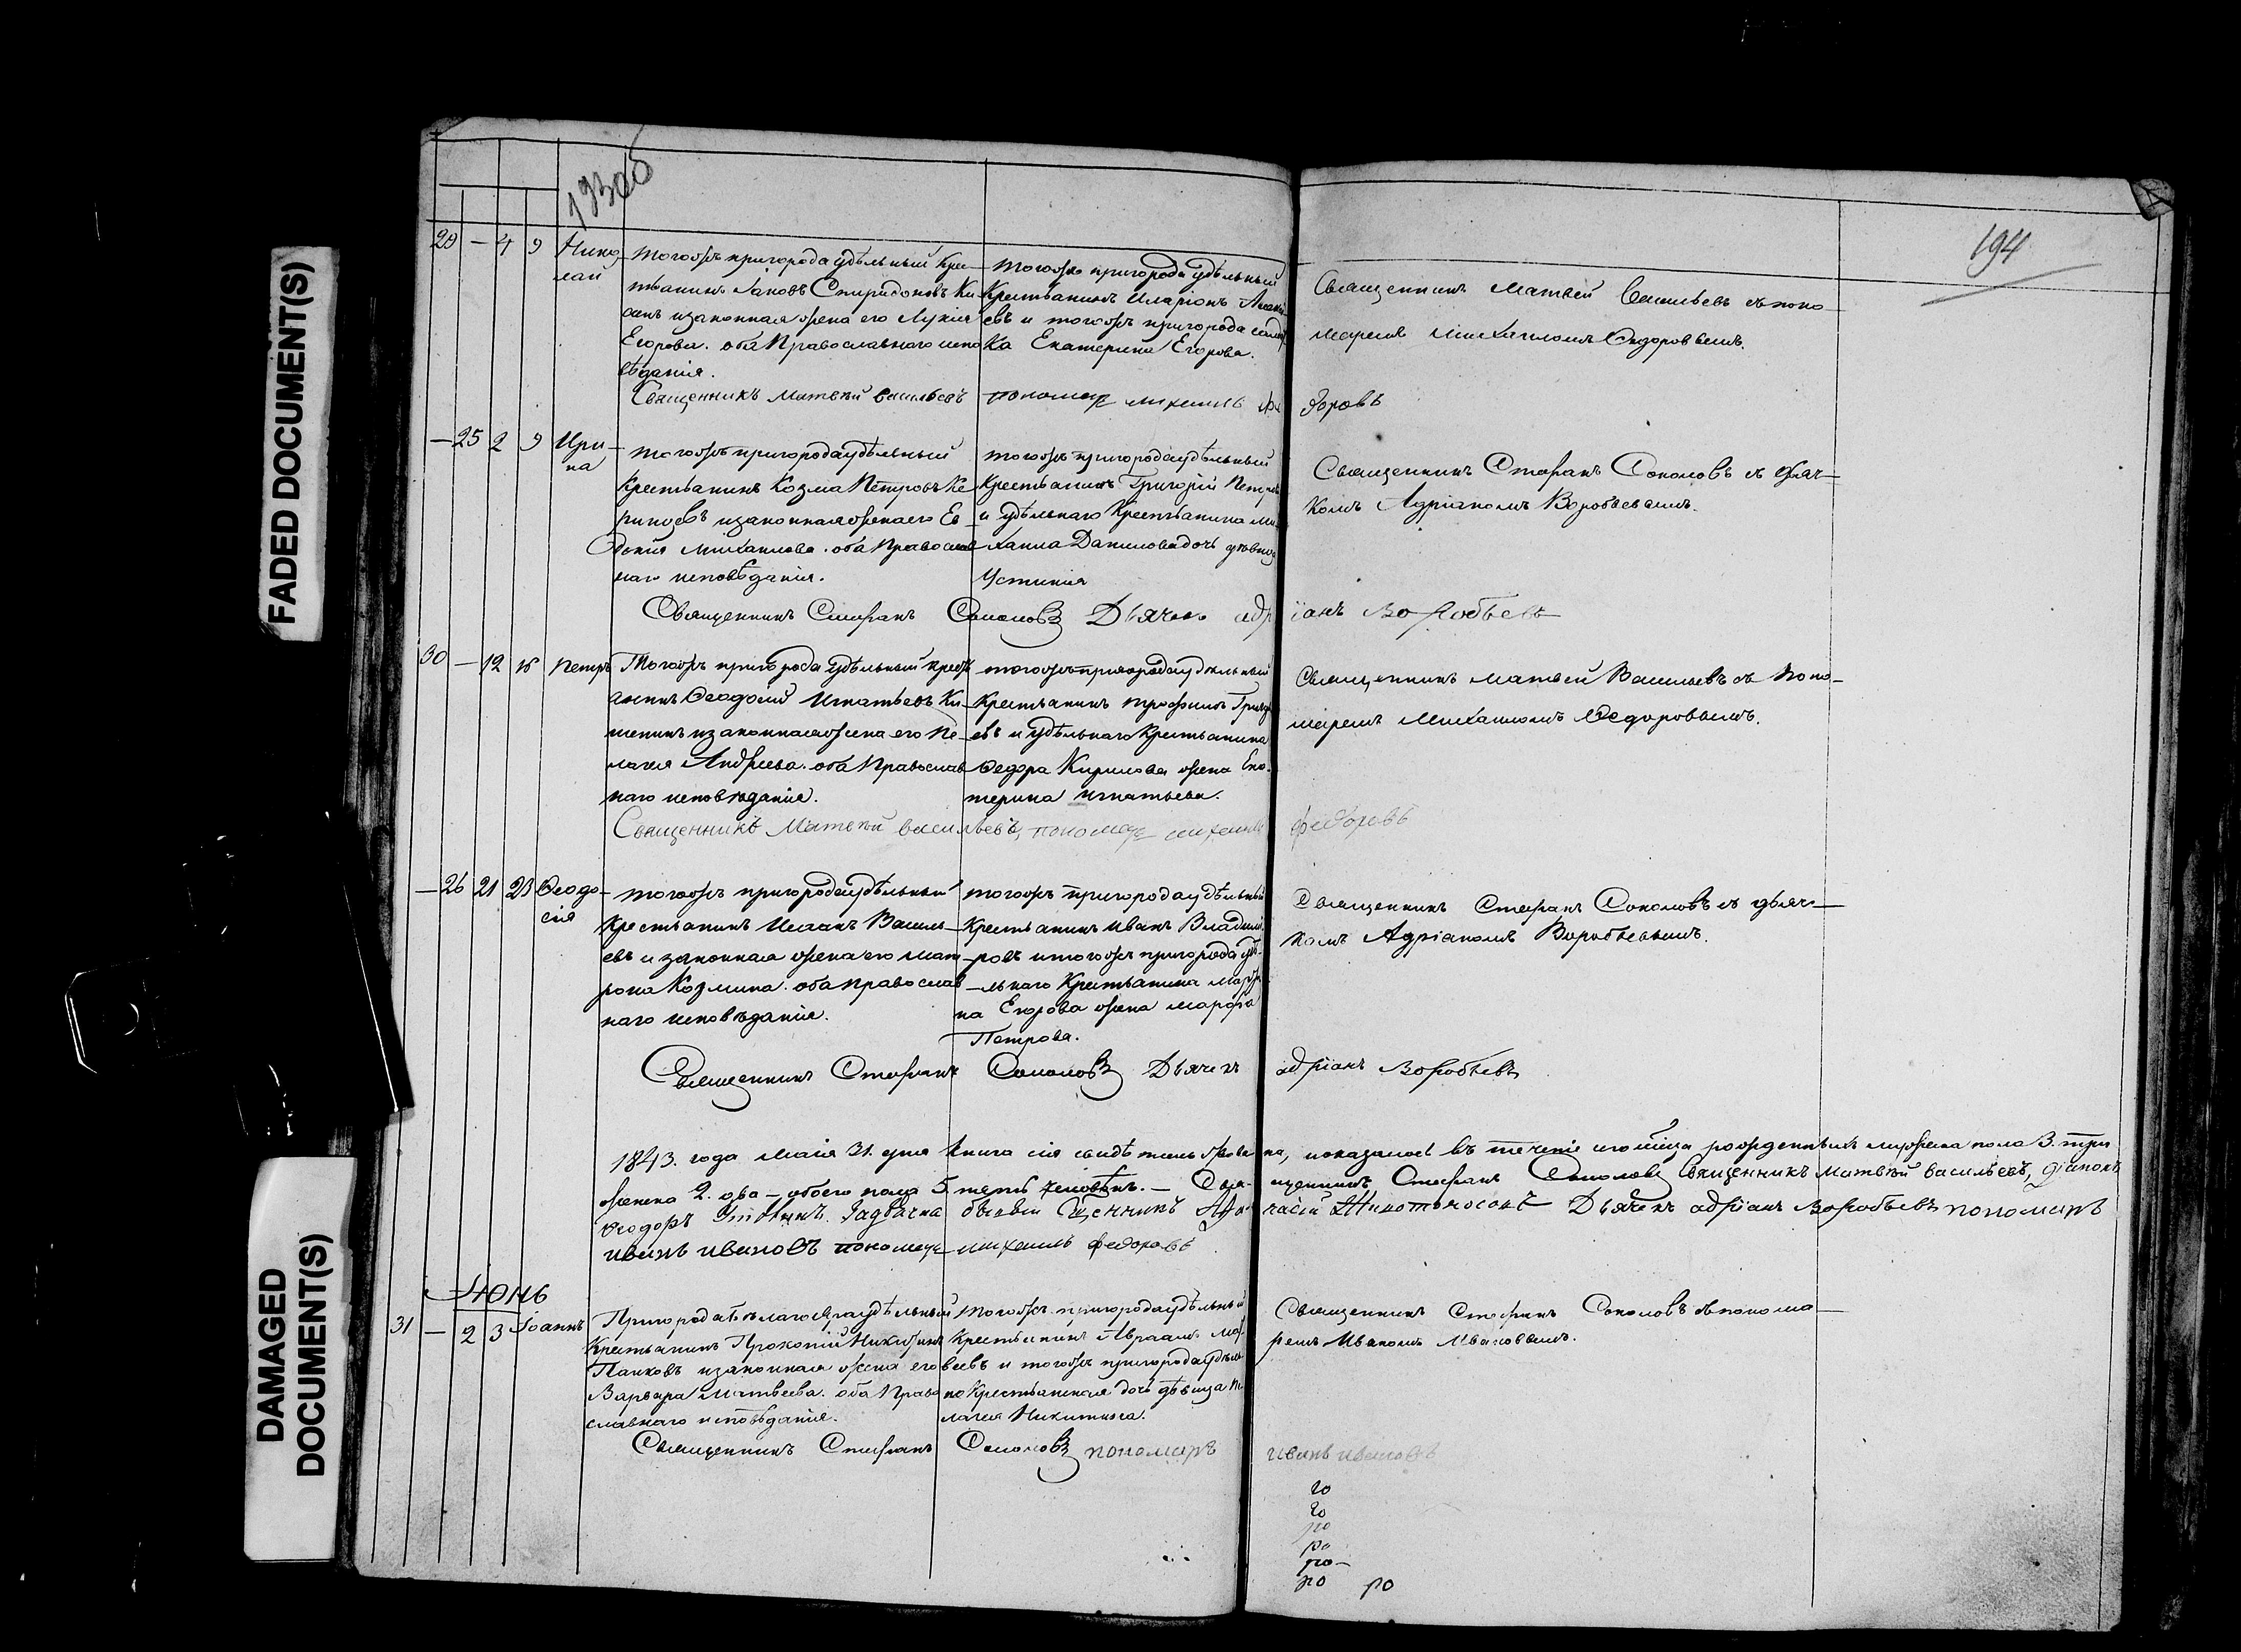 FADED DOCUMENT(S)
DAMAGED DOCUMENT(S)
194
29 — 4 9 Нико-
лай
тогожъ пригорода удѣльный Кре-
стьянинъ Іаковъ Спиридоновъ
изаконная жена его Лукія
Егорова. оба Православнаго испо
вѣданія.
тогожъ пригорода удѣльный
Крестьянинъ Иларіонъ
евъ и тогожъ пригорода
Екатерина Егорова.
Священникъ Матвей Васильевъ съ поно-
маремъ Михаиломъ Ѳедоровымъ.
Священникъ Матвѣй Васильевъ пономарь михаилъ фе
доровъ
— 25 2 9 Ири-
на
тогожъ пригорода удѣльный
Крестьянинъ Козма Петровъ Ке
изаконная жена его Ев
докия Михаилова. оба Православ
наго исповѣданія.
тогожъ пригорода удѣльный
Крестьянинъ Григорій Петровъ
и удѣльнаго Крестьянина Ми
хаила Данилова дочь
Устинія
Священникъ Стефанъ Соколовъ съ дьяч-
комъ Адріаномъ Воробьевымъ.
Священникъ Стефанъ Соколовъ Дьячекъ адр
іанъ Воробьевъ
30 — 12 16 Петръ
Тогожъ пригорода удѣльный крест
янинъ Ѳеодосий Игнатьевъ Ки
шенинъ изаконная жена его Пе
лагея Андреева. оба Православ
наго исповѣданія.
тогожъ пригорода удѣльный
Крестьянинъ Трофимъ Григорь
евъ и удѣльнаго Крестьянина
Ѳедора Кирилова жена Ека
терина Игнатьева.
Священникъ Матвей Васильевъ съ Поно-
маремъ Михаиломъ Ѳедоровымъ.
Священникъ Матвѣй васильевъ, пономарь михаилъ
федоровъ
— 26 21 23 Ѳеодо-
сія
тогожъ пригорода удѣльный
Крестьянинъ Исаакъ Василь-
евъ и законная жена его Мат
рона Козмина. оба православ
наго исповѣданія.
тогожъ пригорода удѣльный
Крестьянинъ Иванъ Владими
ровъ и тогожъ пригорода удѣ
льнаго Крестьянина
Егорова жена Марфа
Петрова.
Священникъ Стефанъ Соколовъ съ дьяч-
комъ Адріаномъ Воробьевымъ.
Священникъ Стефанъ Соколовъ Дьячекъ
адріанъ Воробьевъ
1843. года Маія 31. дня Книга сія свидѣтельствова на, показалось въ теченіе рожденныхъ пола 3. три
женска 2. два — обоего пола 5. пять человѣкъ. — Свя щенникъ Стефанъ Соколовъ Священникъ Матвѣй васильевъ, діаконъ
Ѳеодоръ Дьячекъ адріанъ Воробьевъ пономарь
иванъ ивановъ пономарь михаилъ федоровъ
Іюнь
31 — 2 3 Іоаннъ
Пригорода Бѣлаго Яра удѣльный
Крестьянинъ Прокопій Никифоровъ
Панковъ изаконная жена его
Варвара Матвеева. оба Право
славнаго исповѣданія.
тогожъ пригорода удѣльный
Крестьянинъ Авраамъ
веевъ и тогожъ пригорода удѣль
но Крестьянская дочь дѣвица Пе
лагея Никитина.
Священникъ Стефанъ Соколовъ съ понома-
ремъ Иваномъ Ивановымъ.
Священникъ Стефанъ Соколовъ пономарь
иванъ ивановъ
го
го
ро
ро
ро —
ро ро